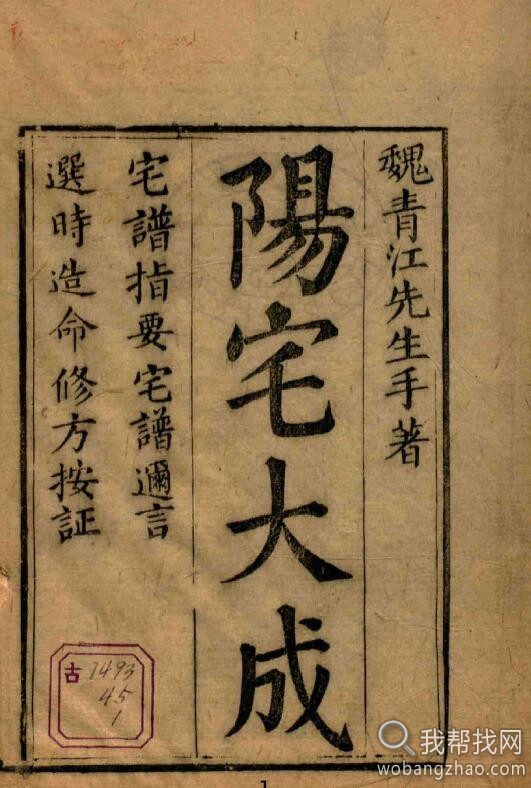 魏青江先生手著
陽宅大成
宅譜指要宅譜邇言
選時造命修方按証
古 1493
45
1
1
我帮找网
wobangzhao.com